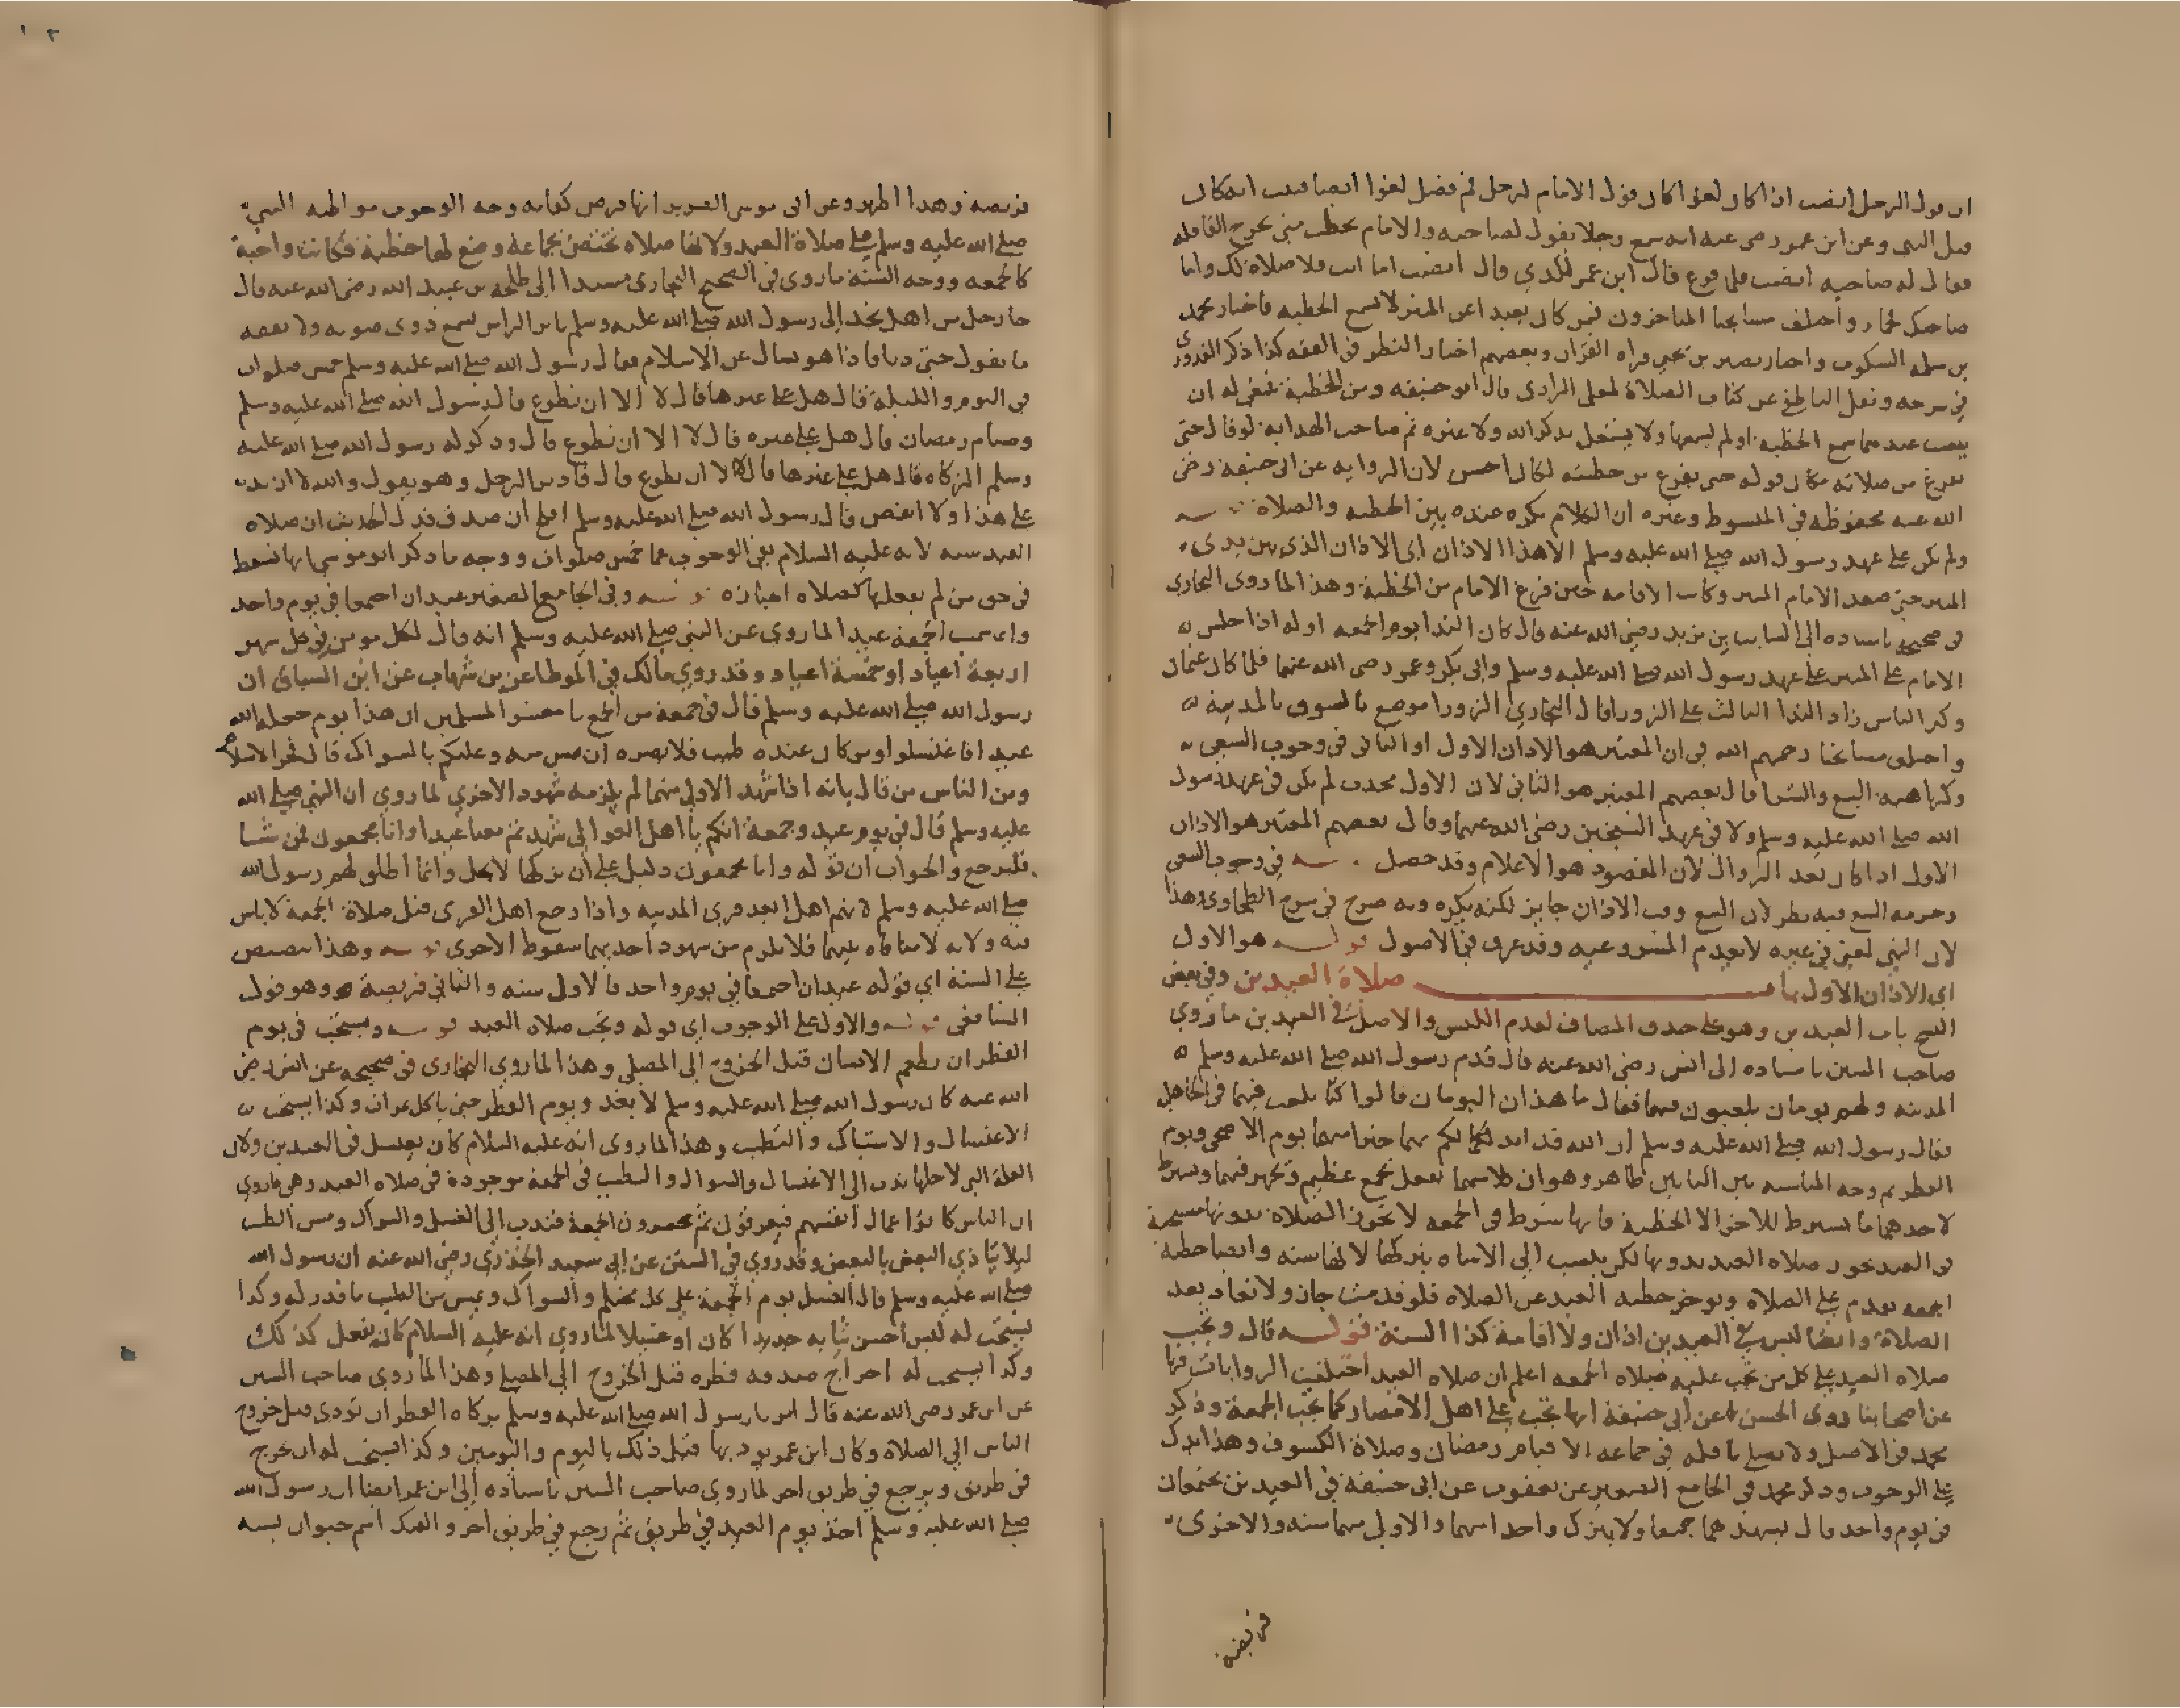 ان قول الرجل انصت اذا كان لغوا كان قول الامام لرجل قم فصل لغوا ايضا قلت انه كان
قبل النهي وعن ابن عمر رضي عنه انه سمع رجلا يقول لصاحبه والامام يخطب متى تخرج القافله
فقال له صاحبه انصت فلما فرغ قال ابن عمر للذي قال انصت اما انت فلا صلاة لك واما
صاحبك فحمار واختلف مشايخنا المتاخرون فيمن كان بعيدا عن المنبر لا يسمع الخطبه فاختار محمد
بن سلمه السكوت واختار نصير بن يحيى قراه القران وبعضهم اختار النظر في الفقه كذا ذكر القدوري
في شرحه ونقل الناطفي عن كتاب الصلاة لمعلى الرازي قال ابو حنيفه ومن الخطبة ينبغي له ان
ينصت عندها سمع الخطبه او لم يسمعها ولا يشتغل بذكر الله ولا غيره ثم صاحب الهدايه لو قال حتى
يفرغ من صلاته مكان قوله حتى يفرغ من خطبته لكان احسن لان الروايه عن ابي حنيفة رضي
الله عنه محفوظه في المبسوط وغيره ان الكلام يكره عنده بين الخطبه والصلاة
ولم يكن على عهد رسول الله صلى الله عليه وسلم الا هذا الاذان اي الاذان الذي بين يدي
المنبر حين صعد الامام المنبر وكانت الاقامه حين فرغ الامام من الخطبة وهذا لما روى البخاري
في صحيحه باسناده الى السايب بن يزيد رضي الله عنه قال كان الندا يوم الجمعه اوله اذا جلس
الامام على المنبر على عهد رسول الله صلى الله عليه وسلم وابي بكر وعمر رضي الله عنهما فلما كان عثمان
وكثر الناس زاد الندا الثالث على الزورا قال البخاري الزورا موضع بالسوق بالمدينة
واختلف مشايخنا رحمهم الله في ان المعتبر هو الاذان الاول او الثاني في وجوب السعي
وكراهية البيع والشرا قال بعضهم المعتبر هو الثاني لان الاول محدث لم يكن في عهد رسول
الله صلى الله عليه وسلم ولا في عهد الشيخين رضي الله عنهما وقال بعضهم المعتبر هو الاذان
الاول اذا كان بعد الزوال لان المقصود هو الاعلام وقد حصل قوله في وجوب السعي
وحرمه البيع فيه نظر لان البيع وقت الاذان جايز لكنه يكره وبه صرح في شرح الطحاوي وهذا
لان النهي لمعنى في غيره لا يعدم المشروعيه وقد عرف في الاصول قوله هو الاول
اي الاذان الاول باب صلاة العيدين وفي بعض
النسخ باب العيدين وهو على حذف المضاف لعدم اللبس والاصل في العيدين ما روي
صاحب السنن باسناده الى انس رضي الله عنه قال قدم رسول الله صلى الله عليه وسلم
المدينه ولهم يومان يلعبون فيهما فقال ما هذان اليومان قالوا كنا نلعب فيهما في الجاهلي
فقال رسول الله صلى الله عليه وسلم ان الله قد ابدلكم بهما خيرا منهما يوم الاضحى ويوم
الفطر ثم وجه المناسبه بين البابين ظاهر وهو ان كلاهما يفعل بجمع عظيم وتجهر فيهما ويشرط
لاحدهما ما يشرط للاخر الا الخطبة فانها شرط في الجمعه لا تجوز الصلاة بدونها
وفي العيد تجوز صلاه العيد بدونها لكن ينسب الى الاساه بتركها لانها سنه وايضا خطبة
الجمعه تقدم على الصلاة وتوخر خطبه العيد عن الصلاه فلو قدمت جاز ولا تعاد بعد
الصلاة وايضا ليس في العيدين اذان ولا اقامة كذا السنة قوله قال وتجب
صلاه العيد على كل من تجب عليه صلاه الجمعه اعلم ان صلاه العيد اختلفت الروايات فيها
عن اصحابنا روى الحسن عن ابي حنيفة انها تجب على اهل الامصار كما تجب الجمعة وذكر
محمد في الاصل ولا يصلى نافله في جماعه الا قيام رمضان وصلاة الكسوف وهذا يدل
على الوجوب وذكر محمد في الجامع الصغير عن يعقوب عن ابي حنيفة في العيدين يجتمعان
في يوم واحد قال يشهدهما جميعا ولا يترك واحدا منهما والاولى منهما سنه والاخرى
فريضة
فريضه وهذا وعن ابي موسى الضرير انها فرض كفايه وجه الوجوب مواظبه النبي
صلى الله عليه وسلم على صلاة العيد ولانها صلاه تختص بجماعة وضع لها خطبة فكانت واجبة
كالجمعه ووجه السنة ما روي في الصحيح البخاري مسندا الى طلحه بن عبيد الله رضي الله عنه قال
جا رجل من اهل نجد الى رسول الله صلى الله عليه وسلم ثاير الراس نسمع دوي صوته ولا نفقه
ما يقول حتى دنا فاذا هو يسال عن الاسلام فقال رسول الله صلى الله عليه وسلم خمس صلوات
في اليوم والليلة قال هل علي غيرها قال لا الا ان تطوع قال رسول الله صلى الله عليه وسلم
وصيام رمضان قال هل علي غيره قال لا الا ان تطوع قال وذكر له رسول الله صلى الله عليه
وسلم الزكاه قال هل علي غيرها قال لا الا ان تطوع قال فادبر الرجل وهو يقول والله لا ازيد
على هذا ولا انقص قال رسول الله صلى الله عليه وسلم افلح ان صدق فدل الحديث ان صلاه
العيد سنه لانه عليه السلام نفى الوجوب عما خمس صلوات ووجه ما ذكر ابو موسى انها تسقط
في حق من لم يفعلها كصلاه الجنازه قوله وفي الجامع الصغير عيدان اجتمعا في يوم واحد
وانما سميت الجمعة عيدا لما روي عن النبي صلى الله عليه وسلم انه قال لكل مومن في كل شهر
اربعة اعياد او خمسة اعياد وقد روي مالك في الموطا عن بن شهاب عن ابن السباق ان
رسول الله صلى الله عليه وسلم قال في جمعة من الجمع يا معشر المسلمين ان هذا يوم جعله الله
عيدا فاغتسلوا ومن كان عنده طيب فلا يضره ان يمس منه وعليكم بالسواك قال فخر الاسلام
ومن الناس من قال بانه اذا شهد الاولى منهما لم يلزمه شهود الاخرى لما روي ان النبي صلى الله
عليه وسلم قال في يوم عيد وجمعة انكم يا اهل العوالي شهدتم معنا عيدا وانا مجمعون فمن شا
فليرجع والجواب ان قوله وانا مجمعون دليل على ان تركها لا يحل وانما اطلق لهم رسول الله
صلى الله عليه وسلم لانهم اهل ابعد قرى المدينه واذا رجع اهل القرى قبل صلاة الجمعة لا باس
به ولانه لا منافاه بينهما فلا يلزم من شهود احدهما سقوط الاخرى قوله وهذا تنصيص
على السنة اي قوله عيدان اجتمعا في يوم واحد فالاول سنه والثاني فريضة وهو قول
الشافعي قوله والاول على الوجوب اي قوله وتجب صلاه العيد قوله ويستحب في يوم
الفطر ان يطعم الانسان قبل الخروج الى المصلى وهذا لما روي البخاري في صحيحه عن انس رضي
الله عنه كان رسول الله صلى الله عليه وسلم لا يغدو يوم الفطر حتى ياكل تمرات وكذا يستحب
الاغتسال والاستياك والتطيب وهذا لما روي انه عليه السلام كان يغتسل في العيدين ولان
العلة التي لاجلها ندب الى الاغتسال والسواك والتطيب في الجمعة موجودة في صلاه العيد وهي ما روي
ان الناس كانوا عمال انفسهم فيعرقون ثم يحضرون الجمعة فندب الى الغسل والسواك ومس الطيب
ليلا يتاذي البعض بالبعض وقد روي في السنن عن ابي سعيد الخدري رضي الله عنه ان رسول الله
صلى الله عليه وسلم قال الغسل يوم الجمعة على كل محتلم والسواك ويمس من الطيب ما قدر له وكذا
يستحب له لبس احسن ثيابه جديدا كان او غسيلا لما روي انه عليه السلام كان يفعل كذلك
وكذا يستحب له اخراج صدقه فطره قبل الخروج الى المصلى وهذا لما روي صاحب السنن
عن ابن عمر رضي الله عنه قال امرنا رسول الله صلى الله عليه وسلم بزكاه الفطر ان تودى قبل خروج
الناس الى الصلاه وكان ابن عمر يوديها قبل ذلك باليوم واليومين وكذا يستحب له ان يخرج
في طريق ويرجع في طريق اخر لما روي صاحب السنن باسناده الى ابن عمر ايضا ان رسول الله
صلى الله عليه وسلم اخذ يوم العيد في طريق ثم رجع في طريق اخر